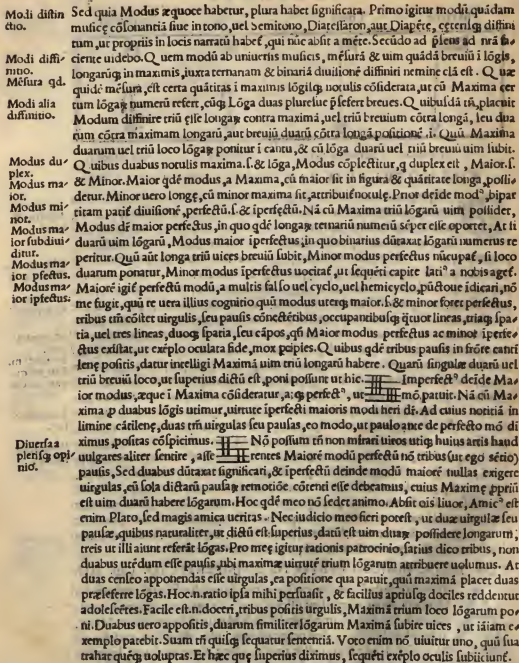 Modi distin
ctio.
Modi diffi-
nitio.
Mēsura qd.
Modi alia
diffinitio.
Modus du-
plex.
Modus ma-
ior.
Modus mi-
nor.
Modus ma-
ior subdiui-
ditur.
Modus ma-
ior pfectus.
Modus ma-
ior ipfectus.
Diuersa a
plerisq opi-
nio.
Sed quia Modus æquoce habetur, plura habet significata. Primo igitur modū quādam
musicę cōsonantiā siue in tono, uel Semitono, Diatessarōn, aut Diapēte, cęterisq diffini
tum, ut propriis in locis narratū habet, qui nūc absit a mēte. Secūdo ad pſens ad nrā fa-
ciente uidebo. Quem modū ab uniuersis musicis, mēsurā & uim quādā breuiū i lōgis,
longarūq in maximis, iuxta ternariam & binariā diuisionē diffiniri nemine clā est. Quæ
quidē mēsura, est certa quātitas i maximis lōgisq notulis cōsiderata, ut cū Maxima cer
tum lōgaꝝ numerū refert, cūq Lōga duas pluresue pſefert breues. Quibusdā tn̄, placuit
Modum diffinire triū esse longaꝝ contra maximā, uel triū breuium cōtra longā, seu dua
rum cōtra maximam longarū, aut breuiū duarū cōtra longā positionē .i. Quū Maxima
duarum uel triū loco lōgaꝝ ponitur i cantu, & cū lōga duarū uel triū breuiū uim subit.
Quibus duabus notulis maxima .s. & lōga, Modus cōplectitur, q duplex est, Maior .s.
& Minor. Maior qdē modus, a Maxima, cū maior sit in figura & quātitate longa, possi-
detur. Minor uero longę, cū minor maxima sit, attribuit notulę. Prior deide modꝰ, bipar
titam patit diuisionē, perfectū .s. & iperfectū. Nā cū Maxima triū lōgarū uim possidet,
Modus dē maior perfectus, in quo qdē longaꝝ ternariū numerū sēper esse oportet, At si
duarū uim lōgarū, Modus maior iperfectus, in quo binarius dūtaxat lōgarū numerus re
peritur. Quū aūt longa triū uices breuiū subit, Minor modus perfectus nūcupat, si loco
duarum ponatur, Minor modus iperfectus uocitat, ut sequēti capite latiꝰ a nobis aget.
Maiorē igit perfectū modū, a multis falso uel cyclo, uel hemicyclo, pūctoue idicari, nō
me fugit, quū re uera illius cognitio quū modus uterq maior .s. & minor foret perfectus,
tribus tm̄ cōstet uirgulis, seu pausis cōnectētibus, occupantibusq qttuor lineas, triaq spa-
tia, uel tres lineas, duoq spatia, seu cāpos, qsi Maior modus perfectus ac minor iperfe-
ctus existat, ut exēplo oculata fide, mox pcipies. Quibus qdē tribus pausis in frōte canti
lenę positis, datur intelligi Maximā uim triū longarū habere. Quarū singulæ duarū uel
triū breuiū loco, ut superius dictū est, poni possunt ut hic. Imperfectꝰ deide Ma-
ior modus, æque i Maxima cōsideratur, aꝝq perfectꝰ, ut mō patuit. Nā cū Ma-
xima p duabus lōgis utimur, uirtute iperfecti maioris modi fieri dī. Ad cuius notitiā in
limine cātilenę, duas tn̄ uirgulas seu pausas, eo modo, ut pauloante de perfecto mō di
ximus, positas cōspicimus. Nō possum tn̄ non mirari uiros utiq huius artis haud
uulgares aliter sentire, asse rentes Maiorē modū perfectū nō tribus (ut ego sētio)
pausis, Sed duabus dūtaxat significari, & iperfectū deinde modū maiorē nullas exigere
uirgulas, cū sola dictarū pausaꝝ remotiōe cōtenti esse debeamus, cuius Maximę ppriū
est uim duarū habere lōgarum. Hoc qdē meo nō sedet animo. Absit ois liuor, Amicꝰ est
enim Plato, sed magis amica ueritas. Nec iudicio meo fieri potest, ut duæ uirgulæ seu
pausæ, quibus naturaliter, ut dictū est superius, datū est uim duaꝝ possidere longarum,
treis ut illi aiunt referāt lōgas. Pro meę igitur rationis patrocinio, satius dico tribus, non
duabus utēdum esse pausis, ubi maximæ uirtutē trium lōgarum attribuere uolumus. At
duas censeo apponendas esse uirgulas, ea positione qua patuit, quū maximā placet duas
præseferre lōgas. Hoc .n. ratio ipsa mihi persuasit, & facilius aptiusq dociles reddentur
adolescētes. Facile est .n. doceri, tribus positis uirgulis, Maximā trium loco lōgarum po
ni. Duabus uero appositis, duarum similiter lōgarum Maximā subire uices, ut iā iam e-
xemplo patebit. Suam tn̄ quisq sequatur sententiā. Voto enim nō uiuitur uno, quū sua
trahat quēq uoluptas. Et hæc que superius diximus, sequēti exēplo oculis subiiciunt.